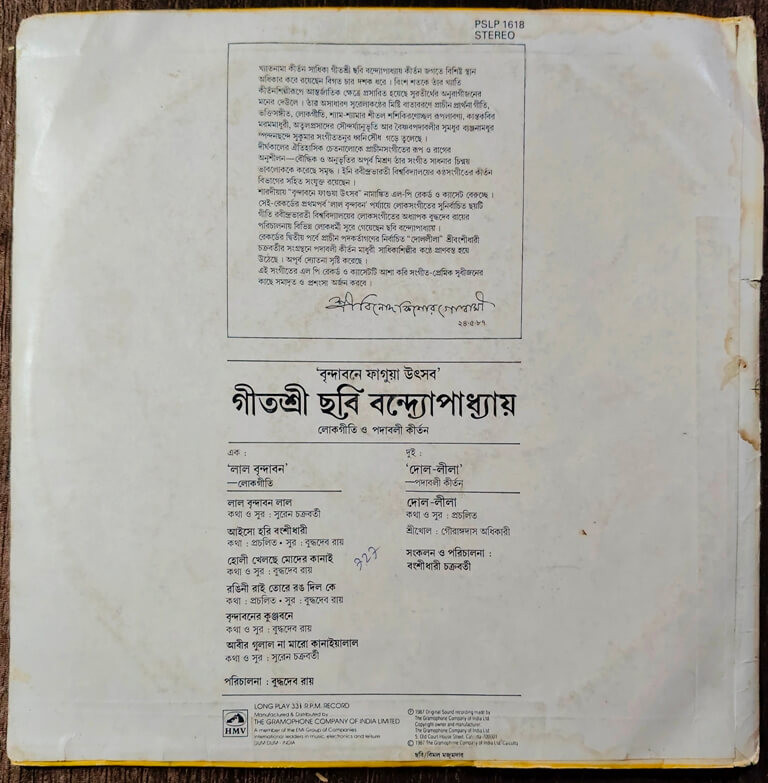 PSLP 1618
STEREO
খ্যাতনামা কীর্তন সাধিকা গীতশ্রী ছবি বন্দ্যোপাধ্যায় কীর্তন জগতে বিশিষ্ট স্থান
অধিকার করে রয়েছেন বিগত চার দশক ধরে । বিংশ শতকে তাঁর খ্যাতি
কীর্তনশিল্পীরূপে আন্তর্জাতিক ক্ষেত্রে প্রসারিত হয়েছে সুরতীর্থের অনুরাগীজনের
মনের দেউলে । তাঁর অসাধারণ সুরেলাকণ্ঠের মিষ্টি বাতাবরণে প্রাচীন প্রার্থনা গীতি,
ভক্তিসঙ্গীত, লোকগীতি, শ্যাম-শ্যামার শীতল শশিকিরণোজ্জ্বল রূপলাবণ্য, কান্তকবির
মরমমাধুরী, অতুলপ্রসাদের সৌন্দর্য্যানুভূতি আর বৈষ্ণবপদাবলীর সুমধুর ব্যঞ্জনামধুর
স্পন্দনছন্দে সুকুমার সংগীততনুর ধ্বনিসৌধ গড়ে তুলেছে ।
দীর্ঘকালের ঐতিহাসিক চেতনালোকে প্রাচীনসংগীতের রূপ ও রাগের
অনুশীলন—বৌদ্ধিক ও অনুভূতির অপূর্ব মিশ্রণ তাঁর সংগীত সাধনার চিন্ময়
ভাবলোককে করেছে সমৃদ্ধ । ইনি রবীন্দ্রভারতী বিশ্ববিদ্যালয়ের কণ্ঠসংগীতের কীর্তন
বিভাগের সহিত সংযুক্ত রয়েছেন ।
শারদীয়ায় "বৃন্দাবনে ফাগুয়া উৎসব" নামাঙ্কিত এল-পি রেকর্ড ও ক্যাসেট বেরুচ্ছে ।
সেই-রেকর্ডের প্রথমপর্ব 'লাল বৃন্দাবন' পর্য্যায়ে লোকসংগীতের সুনির্বাচিত ছয়টি
গীতি রবীন্দ্রভারতী বিশ্ববিদ্যালয়ের লোকসংগীতের অধ্যাপক বুদ্ধদেব রায়ের
পরিচালনায় বিভিন্ন লোকধর্মী সুরে গেয়েছেন ছবি বন্দ্যোপাধ্যায় ।
রেকর্ডের দ্বিতীয় পর্বে প্রাচীন পদকর্তাগণের নির্বাচিত "দোললীলা" শ্রীবংশীধারী
চক্রবর্তীর সংগ্রন্থনে পদাবলী কীর্তন মাধুরী সাধিকাশিল্পীর কণ্ঠে প্রাণবন্ত হয়ে
উঠেছে । অপূর্ব দ্যোতনা সৃষ্টি করেছে ।
এই সংগীতের এল পি রেকর্ড ও ক্যাসেটটি আশা করি সংগীত-প্রেমিক সুধীজনের
কাছে সমাদৃত ও প্রশংসা অর্জন করবে ।
শ্রীবিনোদকিশোর গোস্বামী
২৪·৫·৮৭
'বৃন্দাবনে ফাগুয়া উৎসব'
গীতশ্রী ছবি বন্দ্যোপাধ্যায়
লোকগীতি ও পদাবলী কীর্তন
এক :
'লাল বৃন্দাবন'
—লোকগীতি
লাল বৃন্দাবন লাল
কথা ও সুর : সুরেন চক্রবর্তী
আইসো হরি বংশীধারী
কথা : প্রচলিত • সুর : বুদ্ধদেব রায়
হোলী খেলছে মোদের কানাই
কথা ও সুর : বুদ্ধদেব রায়
রঙিনী রাই তোরে রঙ দিল কে
কথা : প্রচলিত • সুর : বুদ্ধদেব রায়
বৃন্দাবনের কুঞ্জবনে
কথা ও সুর : বুদ্ধদেব রায়
আবীর গুলাল না মারো কানাইয়ালাল
কথা ও সুর : সুরেন চক্রবর্তী
পরিচালনা : বুদ্ধদেব রায়
দুই :
'দোল-লীলা'
—পদাবলী কীর্তন
দোল-লীলা
কথা ও সুর : প্রচলিত
শ্রীখোল : গৌরাঙ্গদাস অধিকারী
সংকলন ও পরিচালনা :
বংশীধারী চক্রবর্তী
HMV
LONG PLAY 33⅓ R.P.M. RECORD
Manufactured & Distributed by
THE GRAMOPHONE COMPANY OF INDIA LIMITED
A member of the EMI Group of Companies
International leaders in music, electronics and leisure
DUM DUM · INDIA
℗ 1987 Original Sound recording made by
The Gramophone Company of India Ltd.
Copyright owner and manufacturer:
The Gramophone Company of India Ltd.
5, Old Court House Street, Calcutta-700001
© 1987 The Gramophone Company of India Ltd. Calcutta
ছবি/বিমল মজুমদার